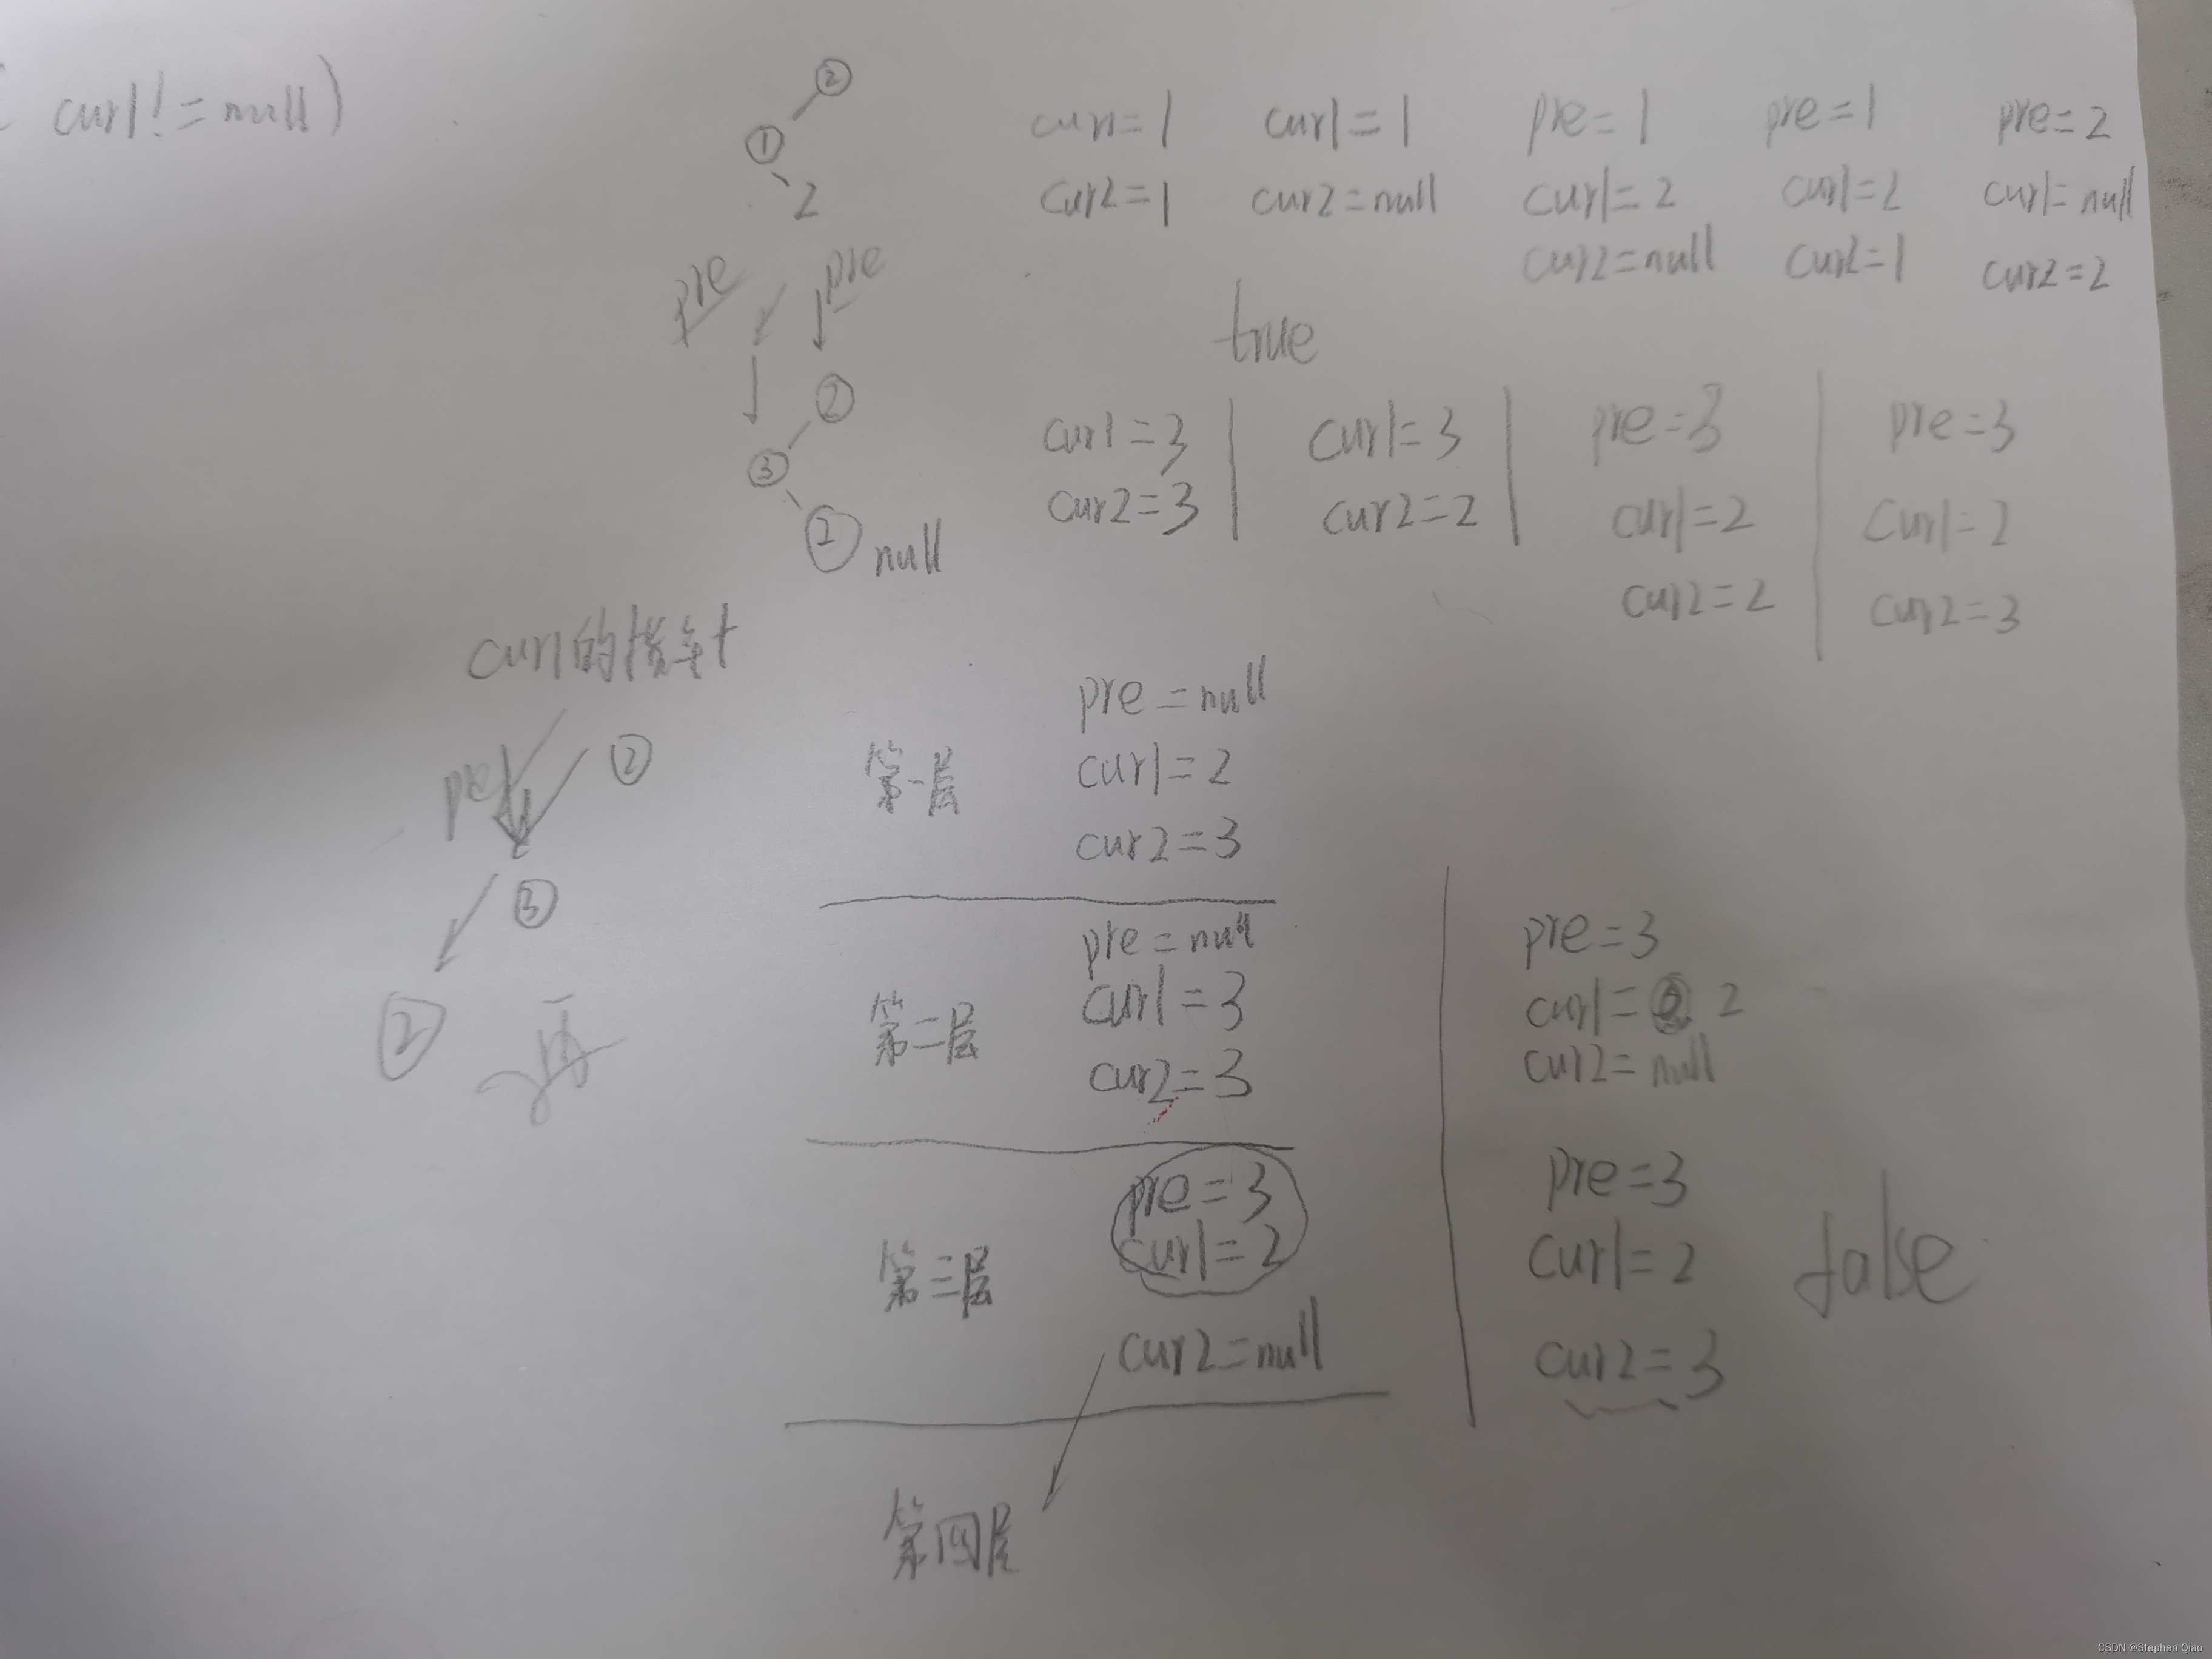 cur1!=null)
②
①
2
cur1=1
cur2=1
cur1=1
cur2=null
pre=1
cur1=2
cur2=null
pre=1
cur1=2
cur2=1
pre=2
cur1=null
cur2=2
true
pre
pre
②
③
② null
cur1=3
cur2=3
cur1=3
cur2=2
pre=3
cur1=2
cur2=2
pre=3
cur1=2
cur2=3
cur1的指针
pre
②
③
②
第一层
pre=null
cur1=2
cur2=3
第二层
pre=null
cur1=3
cur2=3
第三层
pre=3
cur1=2
cur2=null
第四层
pre=3
cur1= 2
cur2=null
pre=3
cur1=2
cur2=3
false
CSDN @Stephen Qiao